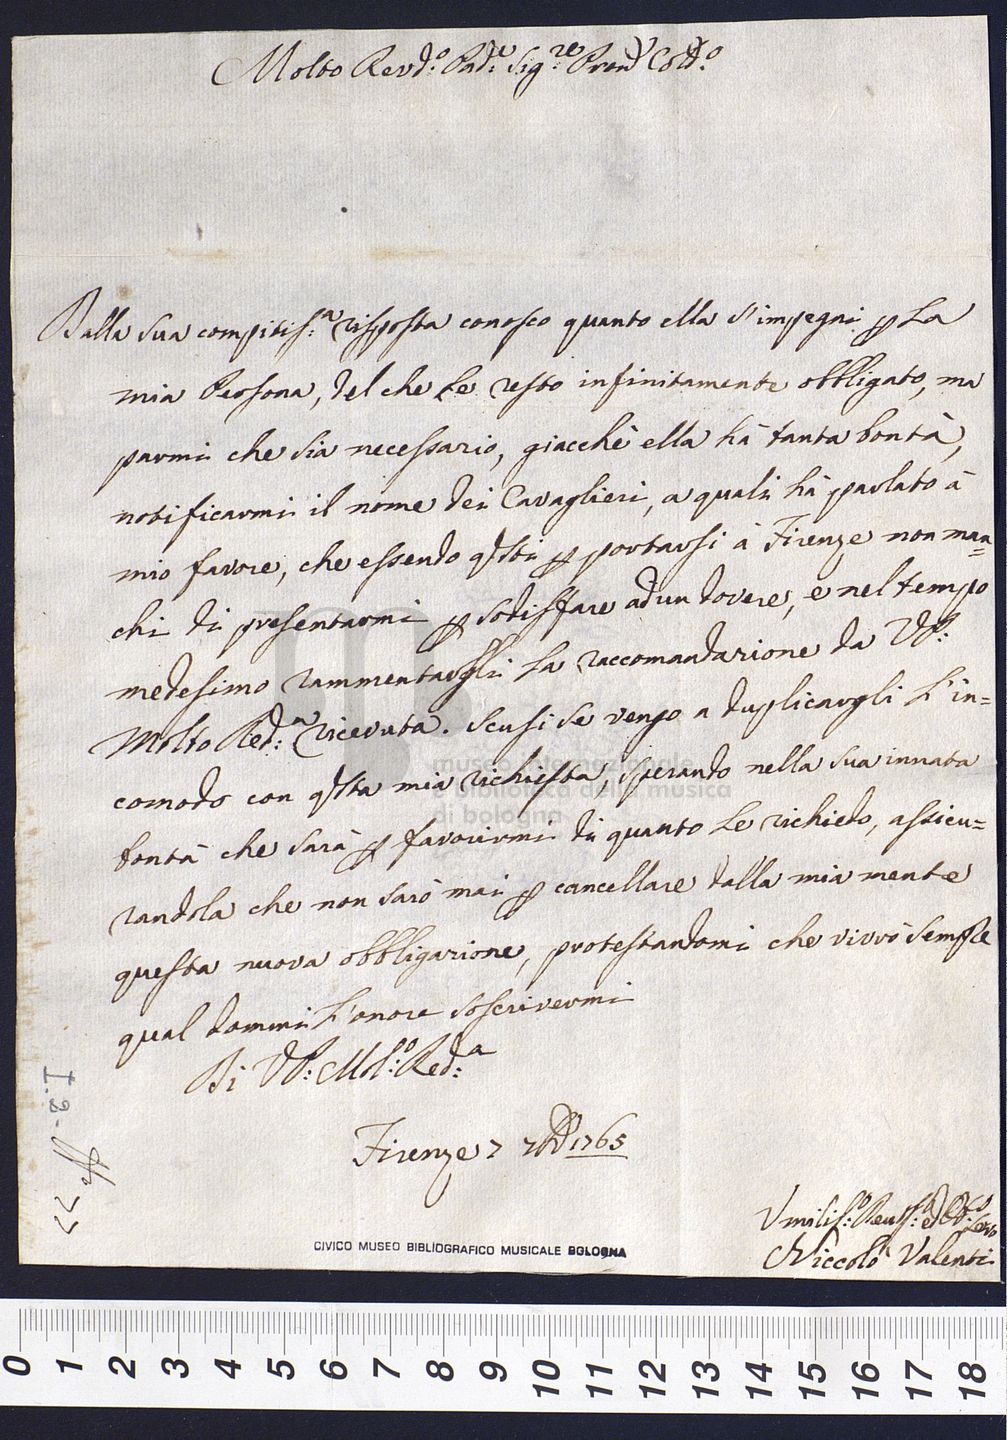 Molto Revd:o Pad:e Sig:re Pron Col:o
Dalla sua compitis:a risposta conosco quanto ella s'impegni p la
mia Persona, del che le resto infinitamente obbligato, ma
parmi che sia necessario, giacchè ella hà tanta bontà,
notificarmi il nome dei Cavaglieri, a quali hà parlato à
mio favore, che essendo qsti p portarsi à Firenze non man=
chi di presentarmi p sodisfare ad un dovere, e nel tempo
medesimo rammentargli la raccomandazione da VP:
Molto Red:a ricevuta. Scusi se vengo a duplicargli l'in=
comodo con qsta mia richiesta, sperando nella sua innata
bontà che sarà p favorirmi di quanto le richiedo, assicu=
randola che non sarò mai p cancellare dalla mia mente
questa nuova obbligazione, protestandomi che vivrò sempre
qual dammi l'onore soscrivermi
Di VP: Mol:o Red:a
Firenze 7 7bre 1765
Umilis:o
Niccolò Valenti
I.2-
77
museo internazionale
e biblioteca della musica
di bologna
CIVICO MUSEO BIBLIOGRAFICO MUSICALE BOLOGNA
0 1 2 3 4 5 6 7 8 9 10 11 12 13 14 15 16 17 18